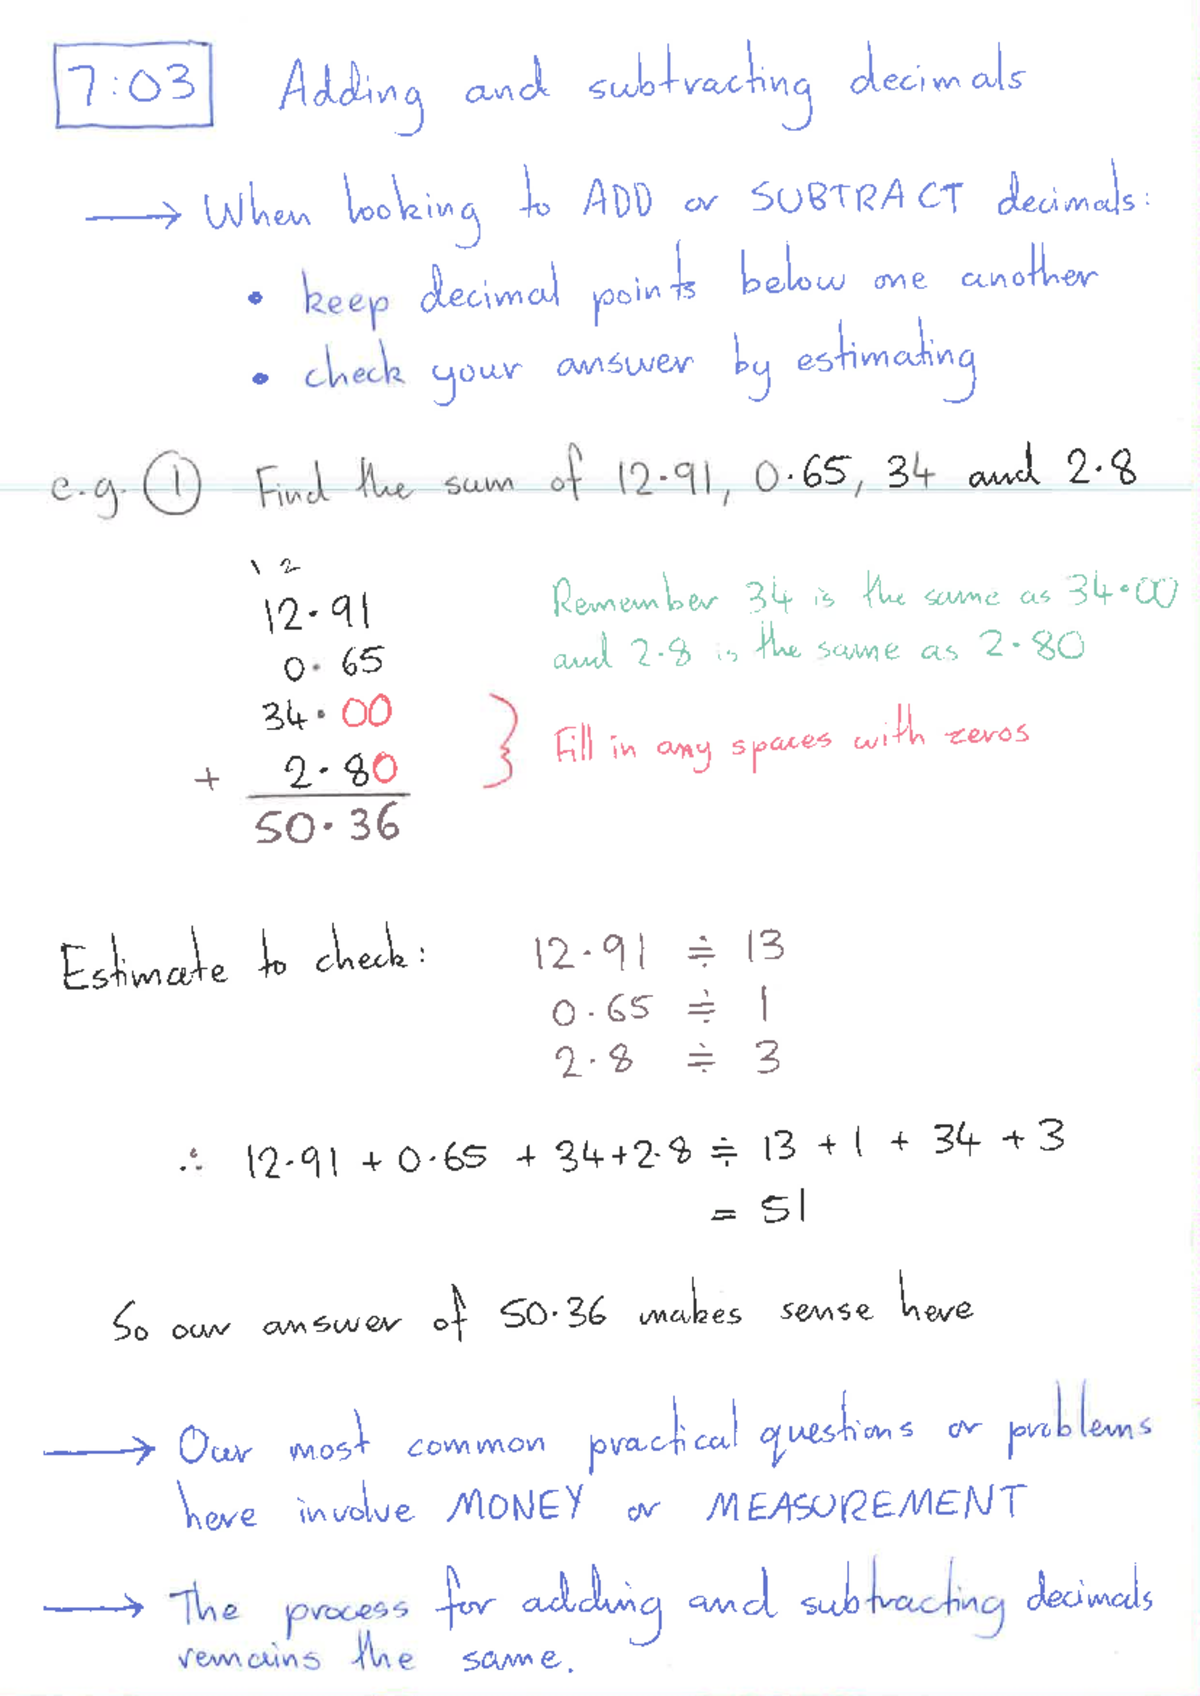 7:03 Adding and subtracting decimals
→ When looking to ADD or SUBTRACT decimals:
• keep decimal points below one another
• check your answer by estimating
e.g. ① Find the sum of 12.91, 0.65, 34 and 2.8
1 2
12.91
0.65
34.00
+ 2.80
50.36
Remember 34 is the same as 34.00
and 2.8 is the same as 2.80
} Fill in any spaces with zeros
Estimate to check: 12.91 ≑ 13
0.65 ≑ 1
2.8 ≑ 3
∴ 12.91 + 0.65 + 34 + 2.8 ≑ 13 + 1 + 34 + 3
= 51
So our answer of 50.36 makes sense here
→ Our most common practical questions or problems
here involve MONEY or MEASUREMENT
→ The process for adding and subtracting decimals
remains the same.